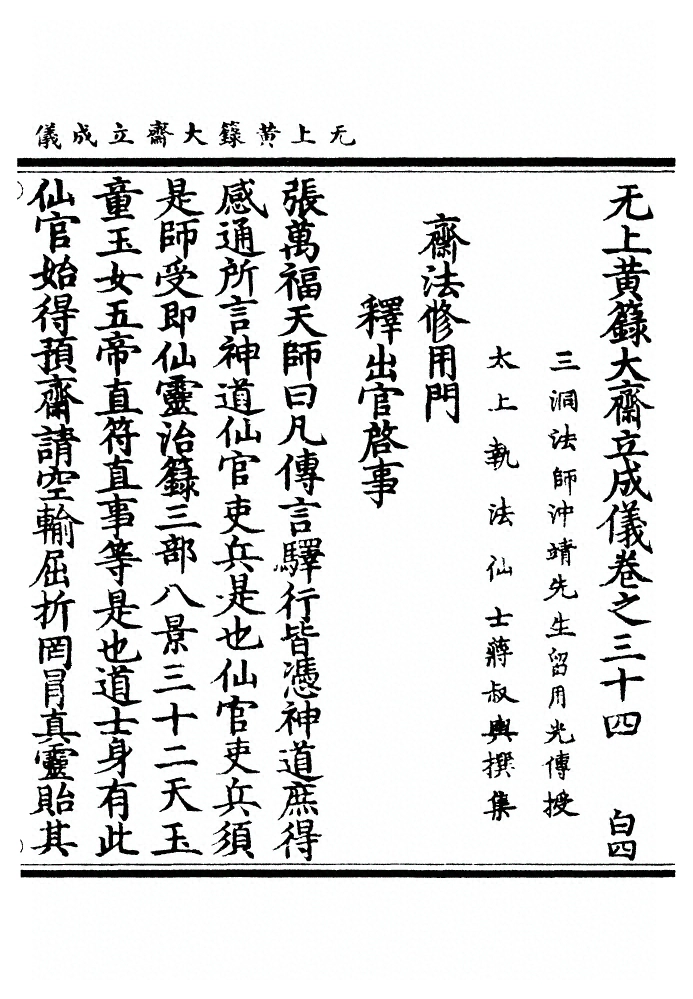 无上黄籙大齋立成儀
无上黄籙大齋立成儀卷之三十四 白四
三洞法師沖靖先生留用光傳授
太上執法仙士蔣叔輿撰集
齋法修用門
釋出官啓事
張萬福天師曰凡傳言驛行皆憑神道庶得
感通所言神道仙官吏兵是也仙官吏兵須
是師受即仙靈治籙三部八景三十二天玉
童玉女五帝直符直事等是也道士身有此
仙官始得預齋請空輸屈折罔冒真靈貽其